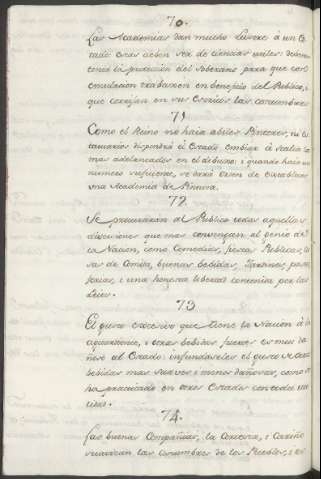 70.
Las Academias dan mucho lustre à un Es
tado esas deben ser de ciencias utiles: deberan
tener la proteccion del Soberano para que con
emulacion trabaxen en beneficio del Publico, i
que corrijan en sus Escritos las costumbres
71
Como el Reino no haia abiles Pintores, ni Es
tatuarios dispondrà el Estado embiar à Italia lo
mas adelantados en el debuxo: i quando haia un
numero suficiente, se darà orden de Establecer
una Academia de Pintura.
72.
Se procuraràn al Publico todas aquellas
diversiones que mas convengan al genio de
la Nacion, como Comedias, fiestas Publicas, Ca
sa de Comida, buenas bebidas, Jardines, pas
i una honesta libertad consentida por las
Leies.
73
El gusto excesivo que tiene la Nacion à la
aguardiente, i otras bebidas fuertes es mui da
ñoso al Estado: infundirseles el gusto de otras
bebidas mas suaves i menos dañosas, como se
ha practicado en otros Estados con toda uti
lidad.
74.
Las buenas Compañias, la i Cariño
suavizan las costumbres de los Pueblos, i